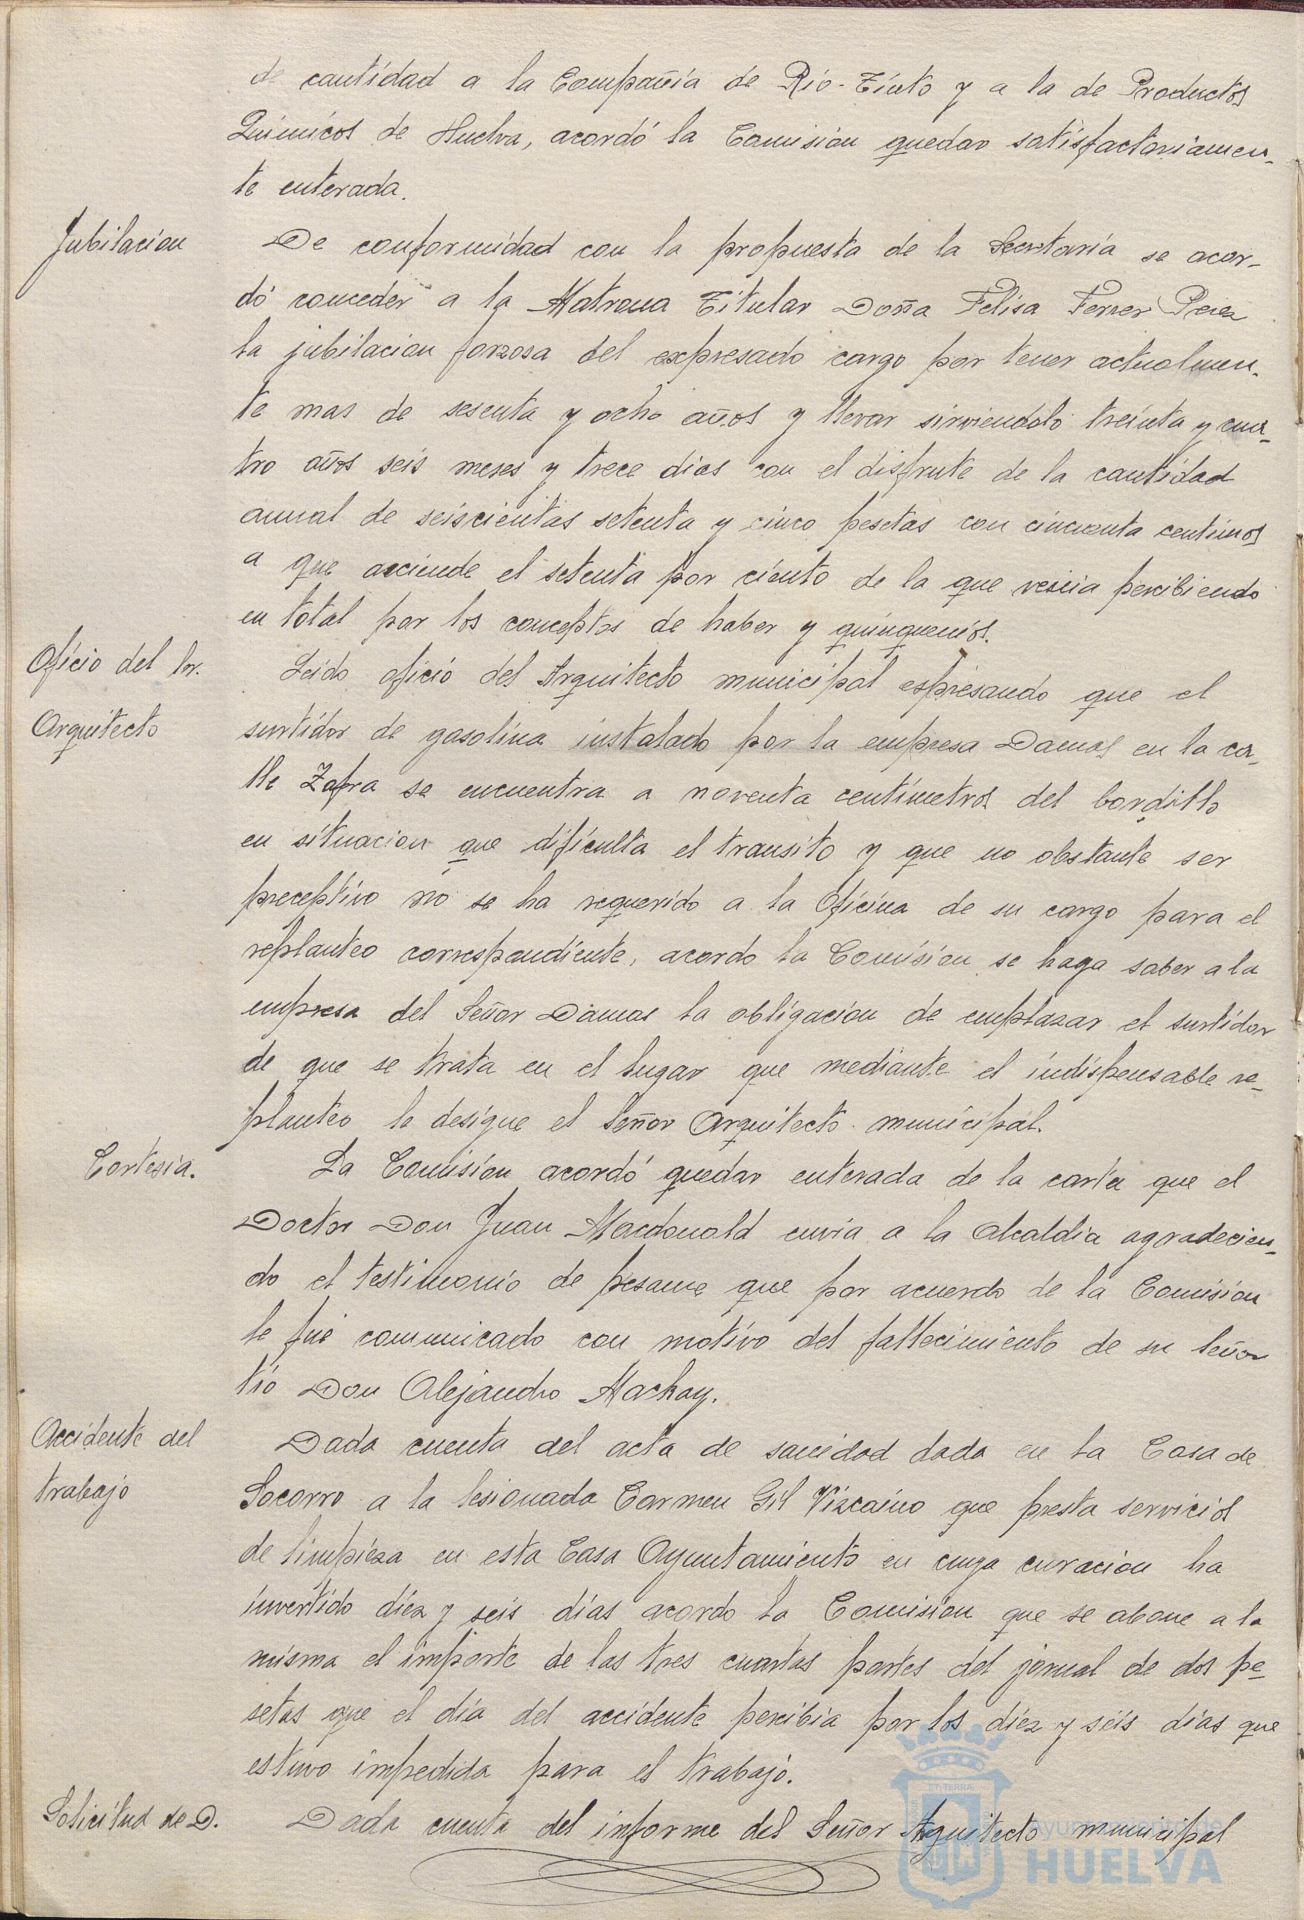 de cantidad a la Compañia de Rio-Tinto y a la de Productos
Quimicos de Huelva, acordó la Comision quedar satisfactoriamen-
te enterada.
Jubilacion
De conformidad con la propuesta de la Secretaría se acor-
dó conceder a la Matrona Titular Doña Felisa Ferrer Perez
la jubilacion forzosa del expresado cargo por tener actualmen-
te mas de sesenta y ocho años y llevar sirviendolo treinta y cua-
tro años seis meses y trece dias con el disfrute de la cantidad
anual de seiscientas setenta y cinco pesetas con cincuenta centimos
a que asciende el setenta por ciento de la que venia percibiendo
en total por los conceptos de haber y quinquenios.
Oficio del Sr.
Arquitecto
Leido oficio del Arquitecto municipal espresando que el
surtidor de gasolina instalado por la empresa Damas en la ca-
lle Zafra se encuentra a noventa centímetros del bordillo
en situacion que dificulta el transito y que no obstante ser
preceptivo no se ha requerido a la Oficina de su cargo para el
replanteo correspondiente, acordo la Comision se haga saber a la
empresa del Señor Damas la obligacion de emplazar el surtidor
de que se trata en el lugar que mediante el indispensable re-
planteo le designe el Señor Arquitecto municipal.
Cortesia.
La Comision acordó quedar enterada de la carta que el
Doctor Don Juan Macdonald envia a la Alcaldia agradecien-
do el testimonio de pesame que por acuerdo de la Comision
le fué comunicado con motivo del fallecimiento de su Señor
tio Don Alejandro Mackay.
Accidente del
trabajo
Dada cuenta del acta de sanidad dada en la Casa de
Socorro a la lesionada Carmen Gil Vizcaino que presta servicios
de limpieza en esta Casa Ayuntamiento en cuya curacion ha
invertido diez y seis dias acordo la Comision que se abone a la
misma el importe de las tres cuartas partes del jornal de dos pe-
setas que el dia del accidente percibia por los diez y seis dias que
estuvo impedida para el trabajo.
Solicitud de D.
Dada cuenta del informe del Señor Arquitecto municipal
Ayuntamiento de
HUELVA